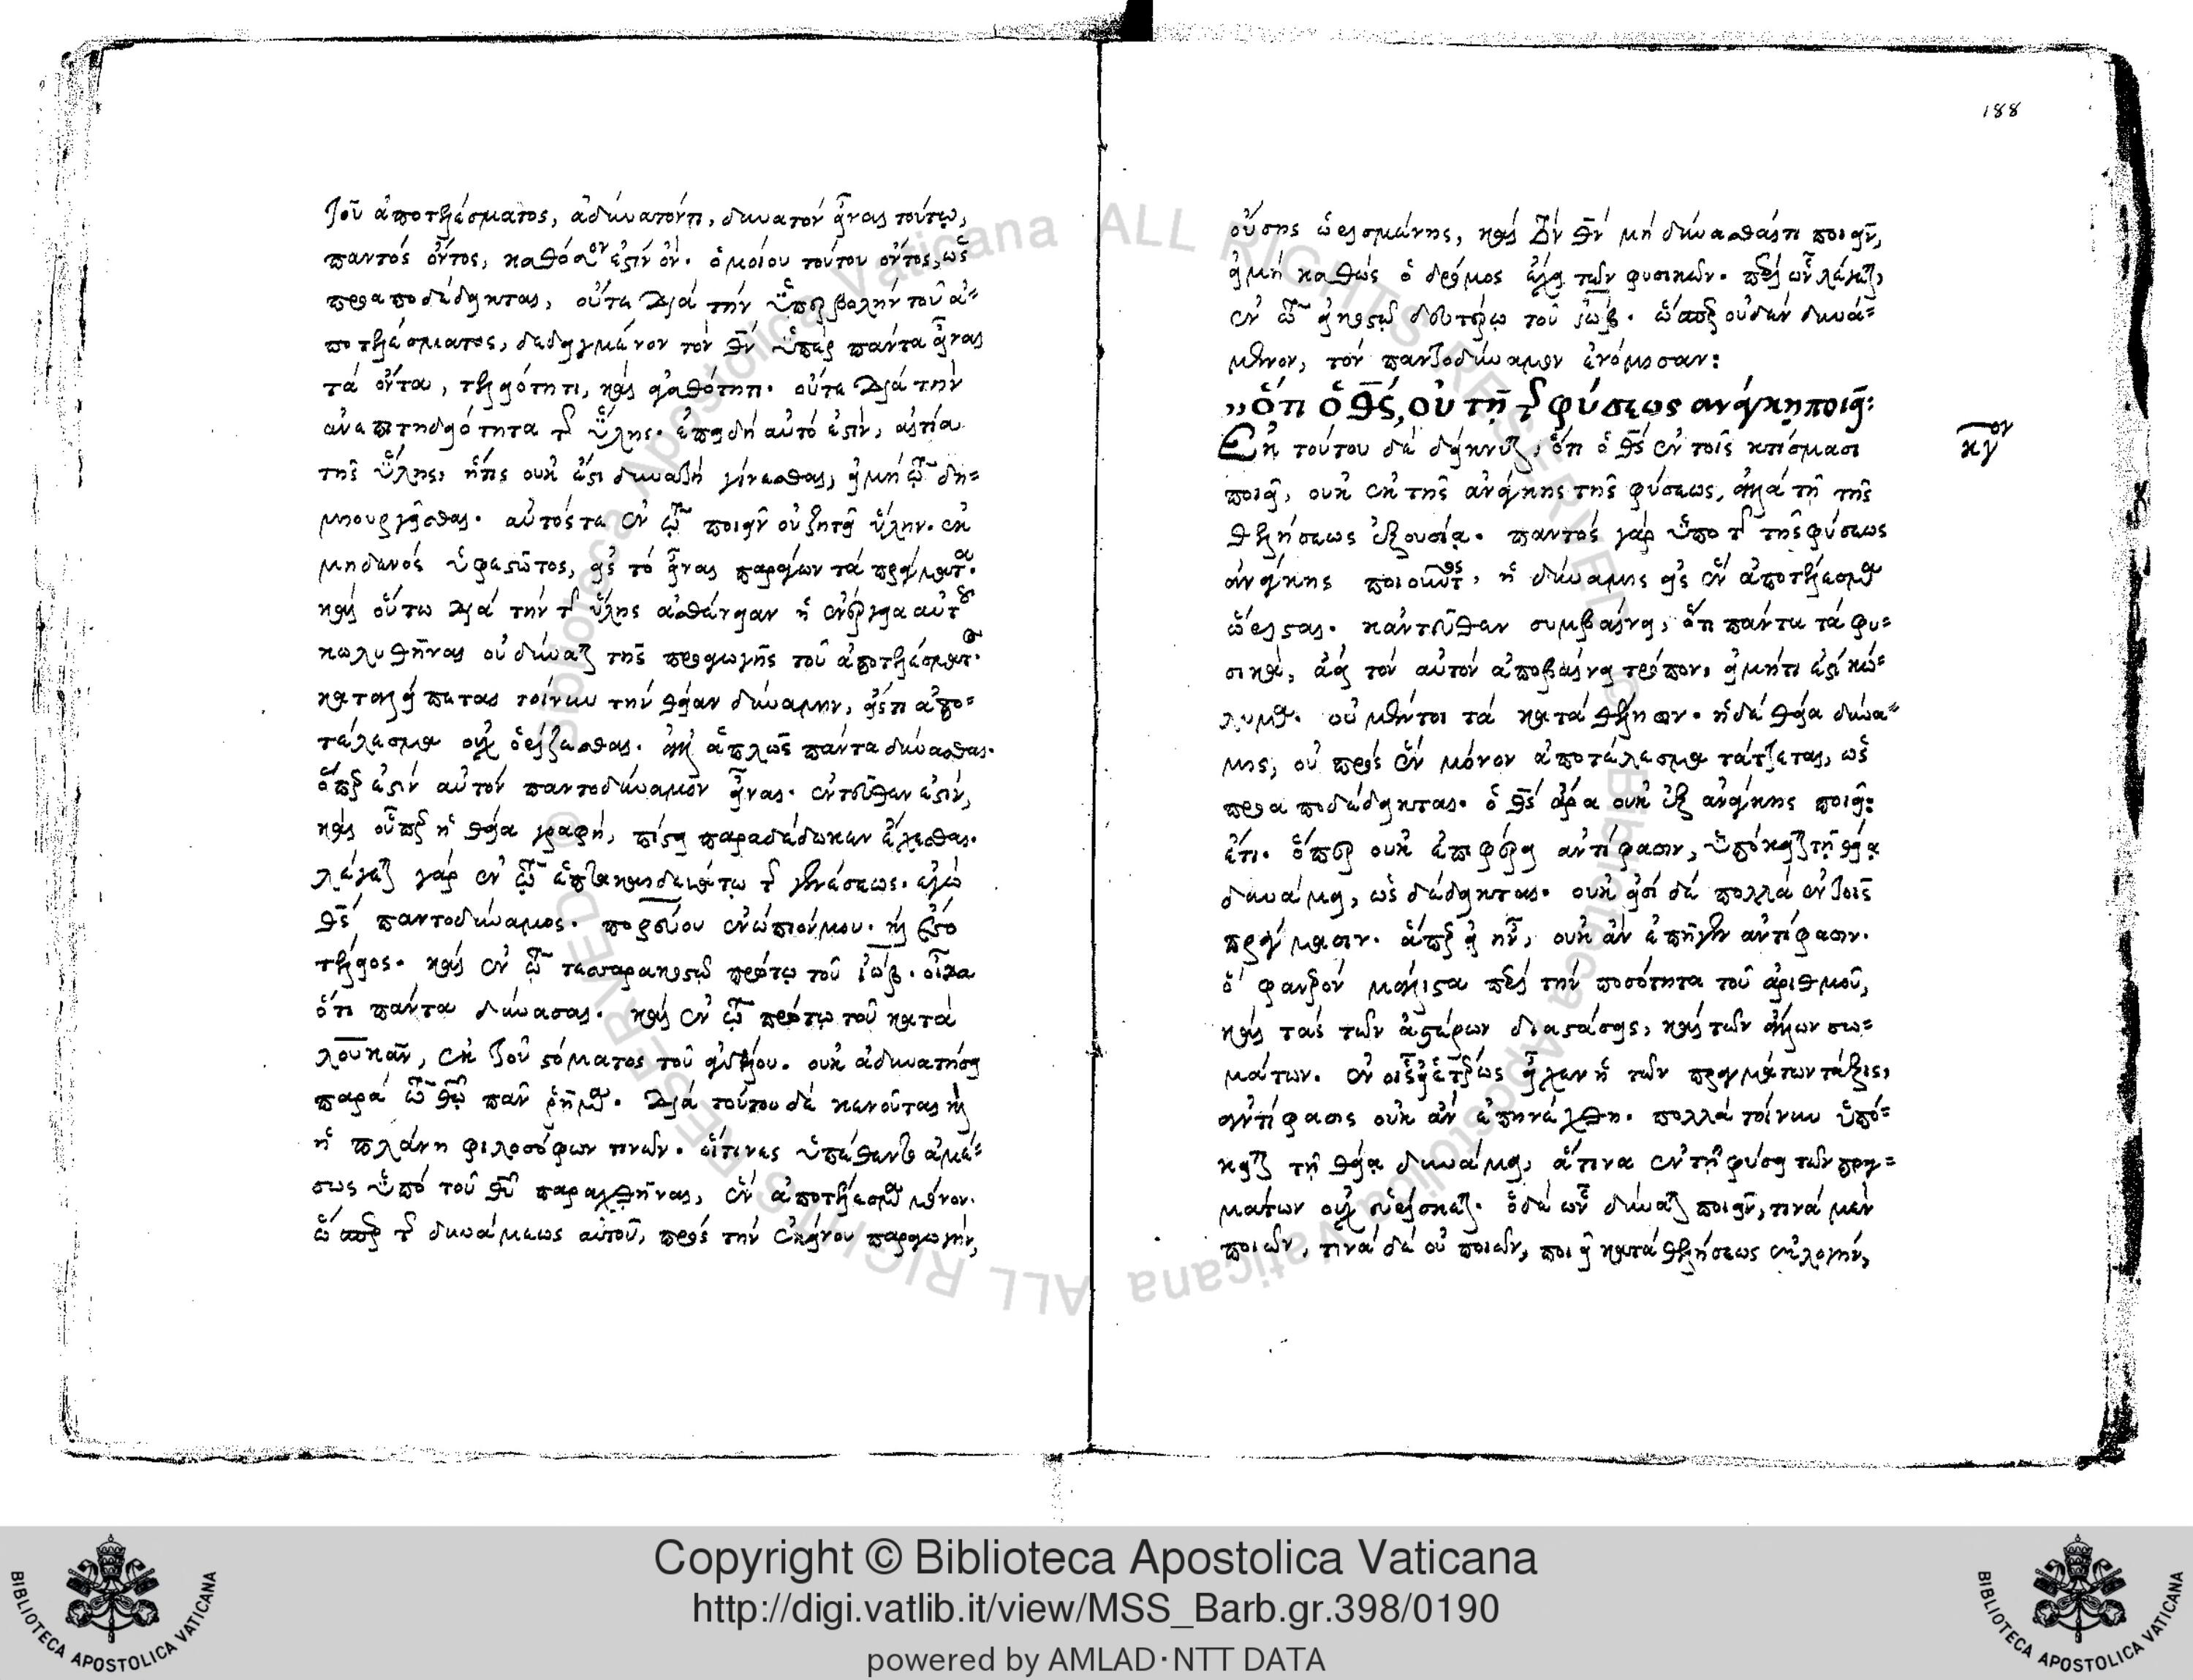 τοῦ ἀποτελέσματος, ἀδύνατόν τι, δυνατὸν εἶναι τούτῳ,
παντὸς ὄντος, καθόσον ἐστὶν ὄν. ὁμοίου τούτου ὄντος, ὡς
προαποδέδεικται, οὔτε διὰ τὴν ὑπερβολὴν τοῦ ἀ-
ποτελέσματος, δεδειγμένον τὸν θν ὑπὲρ πάντα εἶναι
τὰ ὄντα, τελειότητι, καὶ ἀγαθότητι. οὔτε διὰ τὴν
ἀνεπιτηδειότητα τῆς ὕλης. ἐπειδὴ αὐτό ἐστιν, αἰτία
τῆς ὕλης, ἥτις οὐκ ἔστι δυνατὴ γίνεσθαι, εἰ μὴ τῷ δη-
μιουργεῖσθαι. αὐτός τε ἐν τῷ ποιεῖν οὐ ζητεῖ ὕλην. ἐκ
μηδενὸς ὑφεστῶτος, εἰς τὸ εἶναι παράγων τὰ πράγματα.
καὶ οὕτω διὰ τὴν τῆς ὕλης ἀσθένειαν ἡ ἐνέργεια αὐτοῦ
κωλυθῆναι οὐ δύναται τῆς προαγωγῆς τοῦ ἀποτελέσματος.
καταλείπεται τοίνυν τὴν θείαν δύναμιν, εἴς τι ἀπο-
τέλεσμα οὐχ ὁρίζεσθαι. ἀλλ' ἁπλῶς πάντα δύνασθαι.
ὅπερ ἐστὶν αὐτὸν παντοδύναμον εἶναι. ἐντεῦθέν ἐστιν,
καὶ οὗπερ ἡ θεία γραφή, πίστει παραδέδωκεν ἔχεσθαι.
λέγεται γὰρ ἐν τῷ ἑπτακαιδεκάτῳ τῆς γενέσεως. ἐγὼ
θς παντοδύναμος. πορεύου ἐνώπιόν μου. καὶ ἔσο
τέλειος. καὶ ἐν τῷ τεσσαρακοστῷ πρώτῳ τοῦ ἰώβ. οἶδα
ὅτι πάντα δύνασαι. καὶ ἐν τῷ πρώτῳ τοῦ κατὰ
λουκᾶν, ἐκ τοῦ στόματος τοῦ ἀγγέλου. οὐκ ἀδυνατήσει
παρὰ τῷ θῷ πᾶν ῥῆμα. διὰ τούτου δὲ κενοῦται καὶ
ἡ πλάνη φιλοσόφων τινῶν. οἵτινες ὑπέθεντο ἀμέ-
σως ὑπὸ τοῦ θυ παραχθῆναι, ἓν ἀποτέλεσμα μόνον.
ὥσπερ τῆς δυνάμεως αὐτοῦ, πρὸς τὴν ἐκείνου παραγωγὴν,
188
οὔσης ὡρισμένης, καὶ τὸν θν μὴ δύνασθαί τι ποιεῖν,
εἰ μὴ καθὼς ὁ δρόμος ἔχει τῶν φυσικῶν. περὶ ὧν λέγεται,
ἐν τῷ εἰκοστῷ δευτέρῳ τοῦ ἰώβ. ὥσπερ οὐδὲν δυνά-
μενον, τὸν παντοδύναμον ἐνόμισαν:
,,ὅτι ὁ θς, οὐ τῇ τῆς φύσεως ἀνάγκῃ ποιεῖ:
κγον
Ἐκ τούτου δὲ δείκνυται, ὅτι ὁ θς ἐν τοῖς κτίσμασι
ποιεῖ, οὐκ ἐκ τῆς ἀνάγκης τῆς φύσεως, ἀλλὰ τῇ τῆς
θελήσεως ἐξουσίᾳ. παντὸς γὰρ ὑπὸ τῆς τῆς φύσεως
ἀνάγκης ποιοῦντος, ἡ δύναμις εἰς ἓν ἀποτέλεσμα
ὥρισται. κἀντεῦθεν συμβαίνει, ὅτι πάντα τὰ φυ-
σικὰ, ἀεὶ τὸν αὐτὸν ἀποβαίνει τρόπον, εἰ μή τι ἐστὶ κώ-
λυμα. οὐ μέντοι τὰ κατὰ θέλησιν. ἡ δὲ θεία δύνα-
μις, οὐ πρὸς ἓν μόνον ἀποτέλεσμα τάττεται, ὡς
προαποδέδεικται. ὁ θς ἄρα οὐκ ἐξ ἀνάγκης ποιεῖ:
ἔτι. ὅπερ οὐκ ἐπιφέρει ἀντίφασιν, ὑπόκειται τῇ θείᾳ
δυνάμει, ὡς δέδεικται. οὐκ εἰσὶ δὲ πολλὰ ἐν τοῖς
πράγμασιν. ἅπερ εἰ ἦν, οὐκ ἂν ἐπῆγεν ἀντίφασιν.
ὃ φανερὸν μάλιστα περὶ τὴν ποσότητα τοῦ ἀριθμοῦ,
καὶ τὰς τῶν ἀστέρων διαστάσεις, καὶ τῶν ἄλλων σω-
μάτων. ἐν οἷς εἰ ἑτέρως εἶχεν ἡ τῶν πραγμάτων τάξις,
ἀντίφασις οὐκ ἂν ἐπηνέχθη. πολλὰ τοίνυν ὑπό-
κειται τῇ θείᾳ δυνάμει, ἅτινα ἐν τῇ φύσει τῶν πραγ-
μάτων οὐχ εὑρίσκεται. ὁ δὲ ὧν δύναται ποιεῖν, τινὰ μὲν
ποιῶν, τινὰ δὲ οὐ ποιῶν, ποιεῖ κατὰ θελήσεως ἐκλογήν,
Copyright © Biblioteca Apostolica Vaticana
http://digi.vatlib.it/view/MSS_Barb.gr.398/0190
powered by AMLAD·NTT DATA
BIBLIOTECA APOSTOLICA VATICANA
BIBLIOTECA APOSTOLICA VATICANA